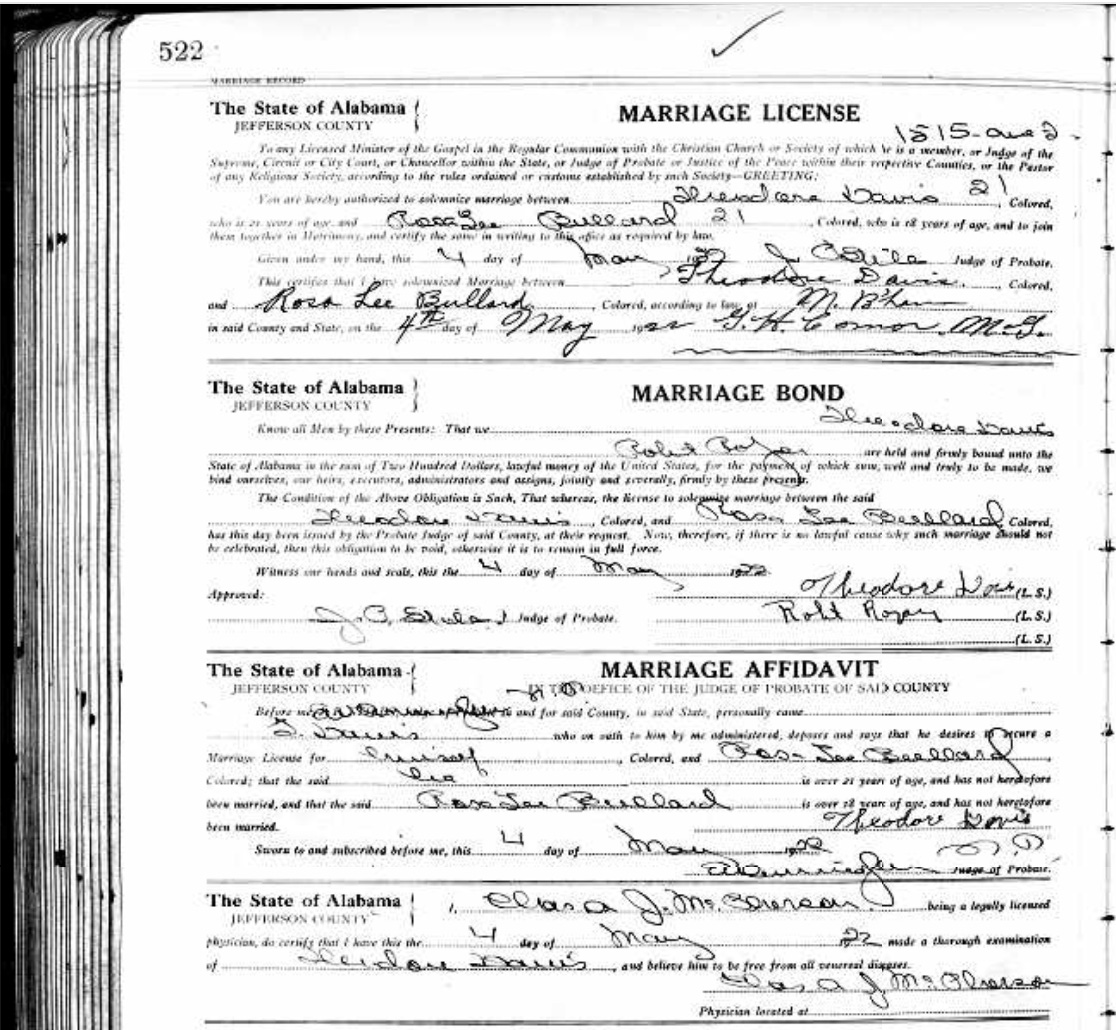 522
MARRIAGE RECORD
The State of Alabama
JEFFERSON COUNTY
MARRIAGE LICENSE
1515- ave
To any Licensed Minister of the Gospel in the Regular Communion with the Christian Church or Society of which he is a member, or Judge of the
Supreme, Circuit or City Court, or Chancellor within the State, or Judge of Probate or Justice of the Peace within their respective Counties, or the Pastor
of any Religious Society, according to the rules ordained or customs established by such Society—GREETING:
You are hereby authorized to solemnize marriage between Theodore Davis 21, Colored,
who is 21 years of age, and Rosa Lee Bullard 21, Colored, who is 18 years of age, and to join
them together in Matrimony, and certify the same in writing to this office as required by law.
Given under my hand, this 4 day of May 1922 J. C. Judge of Probate.
This certifies that I have solemnized Marriage between Theodore Davis, Colored,
and Rosa Lee Bullard, Colored, according to law, at B'ham
in said County and State, on the 4th day of May 1922 G. H. Connor, M. G.
The State of Alabama
JEFFERSON COUNTY
MARRIAGE BOND
Know all Men by these Presents: That we Theodore Davis
Robt are held and firmly bound unto the
State of Alabama in the sum of Two Hundred Dollars, lawful money of the United States, for the payment of which sum, well and truly to be made, we
bind ourselves, our heirs, executors, administrators and assigns, jointly and severally, firmly by these presents.
The Condition of the Above Obligation is Such, That whereas, the license to solemnize marriage between the said
Theodore Davis, Colored, and Rosa Lee Bullard, Colored,
has this day been issued by the Probate Judge of said County, at their request. Now, therefore, if there is no lawful cause why such marriage should not
be celebrated, then this obligation to be void, otherwise it is to remain in full force.
Witness our hands and seals, this the 4 day of May 1922
Approved: Theodore Davis (L.S.)
J. P. Judge of Probate. Robt (L.S.)
(L.S.)
The State of Alabama
JEFFERSON COUNTY
MARRIAGE AFFIDAVIT
IN THE OFFICE OF THE JUDGE OF PROBATE OF SAID COUNTY
Before me in and for said County, in said State, personally came
T. Davis who on oath to him by me administered, deposes and says that he desires to secure a
Marriage License for himself, Colored, and Rosa Lee Bullard
Colored; that the said he is over 21 years of age, and has not heretofore
been married, and that the said Rosa Lee Bullard is over 18 years of age, and has not heretofore
been married. Theodore Davis
Sworn to and subscribed before me, this 4 day of May 1922
Judge of Probate.
The State of Alabama
JEFFERSON COUNTY
I, Chas A J. McPherson being a legally licensed
physician, do certify that I have this the 4 day of May 1922 made a thorough examination
of Theodore Davis, and believe him to be free from all venereal diseases.
Chas A J McPherson
Physician located at